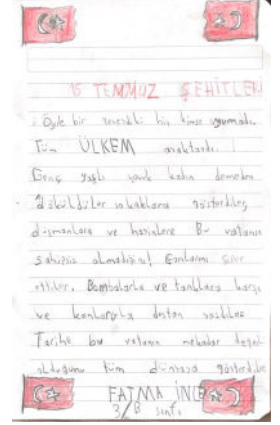 15 TEMMUZ ŞEHİTLERİ
Öyle bir geceydi hiç kimse uyumadı.
Tüm ÜLKEM ayaktardı.
Genç yaşlı çocuk kadın demeden
döküldüler sokaklara gösterdiler
düşmanlara ve hainlere Bu vatanın
sahipsiz olmadığını! Canlarını siper
ettiler. Bombalarla ve tanklara karşı
ve kanlarıyla destan yazdılar
Tarihe bu vatanın değil
olduğunu tüm dünyaya gösterdiler
FATMA İNCE
3/B sınfı